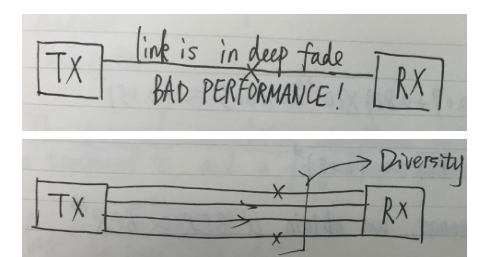 TX
link is in deep fade
BAD PERFORMANCE!
RX
Diversity
TX
RX